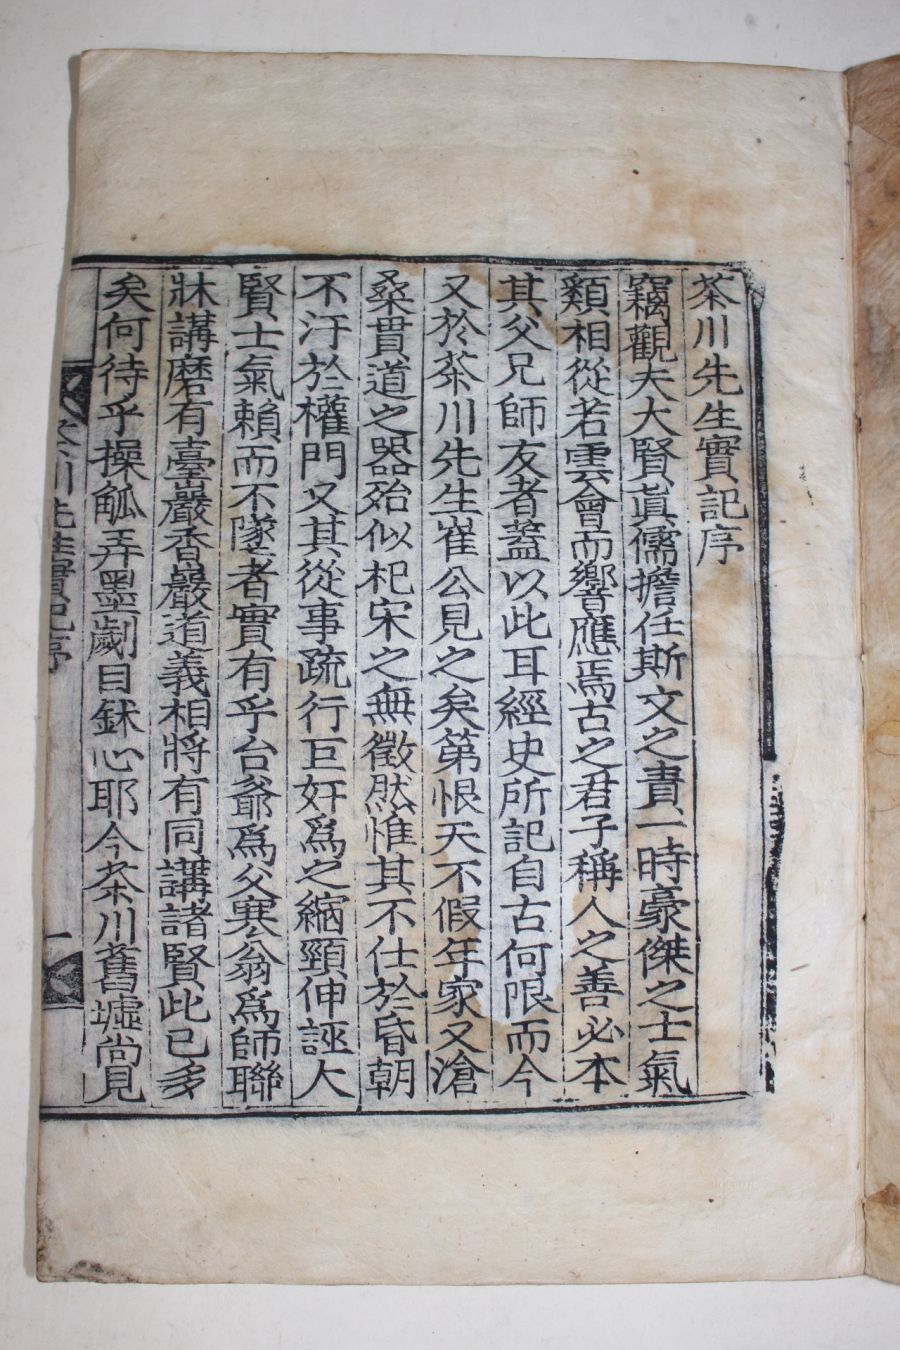 茶川先生實記序
竊觀夫大賢眞儒擔任斯文之責一時豪傑之士氣
類相從若雲會而響應焉古之君子稱人之善必本
其父兄師友者蓋以此耳經史所記自古何限而今
又於茶川先生崔公見之矣第恨天不假年家又滄
桑貫道之器殆似杞宋之無徵然惟其不仕於昏朝
不汙於權門又其從事疏行巨奸爲之縮頸伸誣大
賢士氣賴而不墜者實有乎台爺爲父寒翁爲師聯
牀講磨有臺巖香巖道義相將有同講諸賢此已多
矣何待乎操觚弄墨劌目鉥心耶今茶川舊墟尚見
茶川先生實記序
一